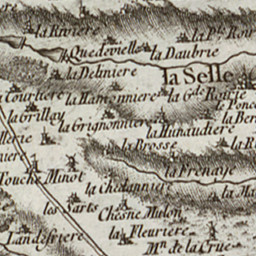 la Riviere
la Pte. Rou
Quedeville
la Daubrie
la Deliniere
la Selle
la Courtiere
la Hamonniere
la Gde. Roirie
la Grillay
la Grignonniere
la Hunaudiere
la Ber
la Brosse
la Frenaye
Touche Minot
la Chedanniere
la Ma
les Sarts
Chesne Mulon
la Fleuriere
Landefriere
Mn. de la Crue